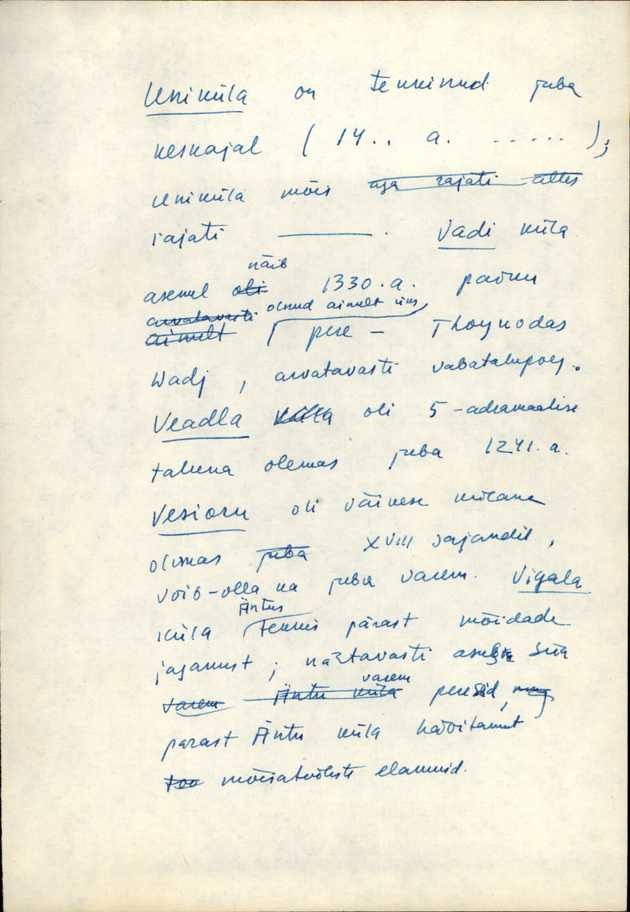 Uniküla on tekkinud juba
keskajal (14.. a. .....);
Uniküla mõis aga rajati alles
rajati ———. Vadi küla
näib
asemel oli 1330.a. paiku
arvatavasti olnud ainult üks
ainult pere – Thoynodas
Wadj, arvatavasti vabatalupoeg.
Veadla küla oli 5-adramaalise
külana olemas juba 1241.a.
Vesioru oli väikese külana
olemas juba XVIII sajandil,
võib-olla ka juba varem. Vigala
Äntus
küla tekkis pärast mõidade
jagamist; nähtavasti asus siia
varem
varem Äntu küla peresid, ning
pärast Äntu küla hävitamist
too mõisatööliste elamuid.